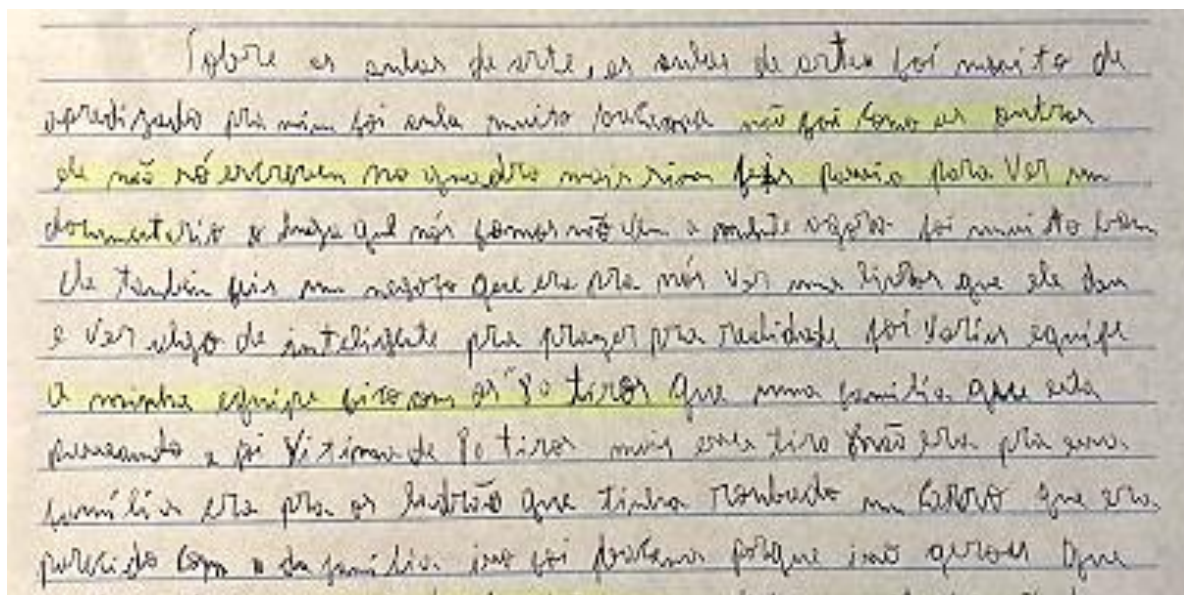 Sobre as aulas de arte, as aulas de artes foi muito de
apredizado pra mim foi aula muito bacana não foi como as outras
ele não só escreven no quadro mais sim fois paseio para ver um
documentario o lugar que nós fomos não vem a mente agora foi muito bom
Ele também fois um negoso que era pra nós ver uma tirtas que ele dau
e ver algo de inteligente pra prazer pra realidade foi varias equipe
a minha equipe fico com os "80 tiros que uma familia que esta
paseando e foi vitima de 80 tiros mais esse tiro não era pra essa
família era pra os ladrão que tinha roubado um carro que era
parecido com o da família isso foi bacana porque isso gerou que